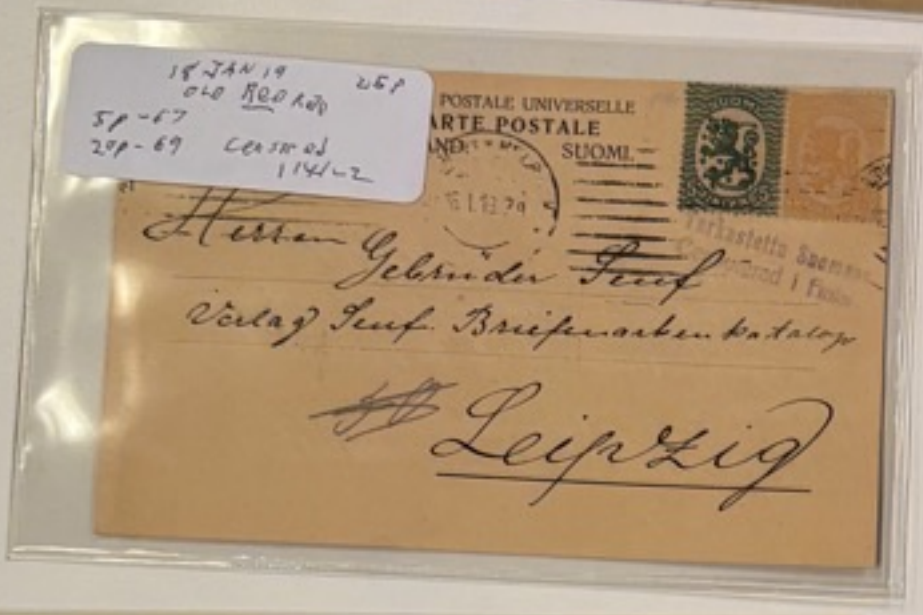 18 JAN 19 25P
OLD
5P-67
20P-69 censored
POSTALE UNIVERSELLE
ARTE POSTALE
AND. SUOMI.
SUOMI
Tarkastettu Suomessa
Herren
Gebrüder Senf
Verlag Senf. Briefmarkenkatalog
Leipzig